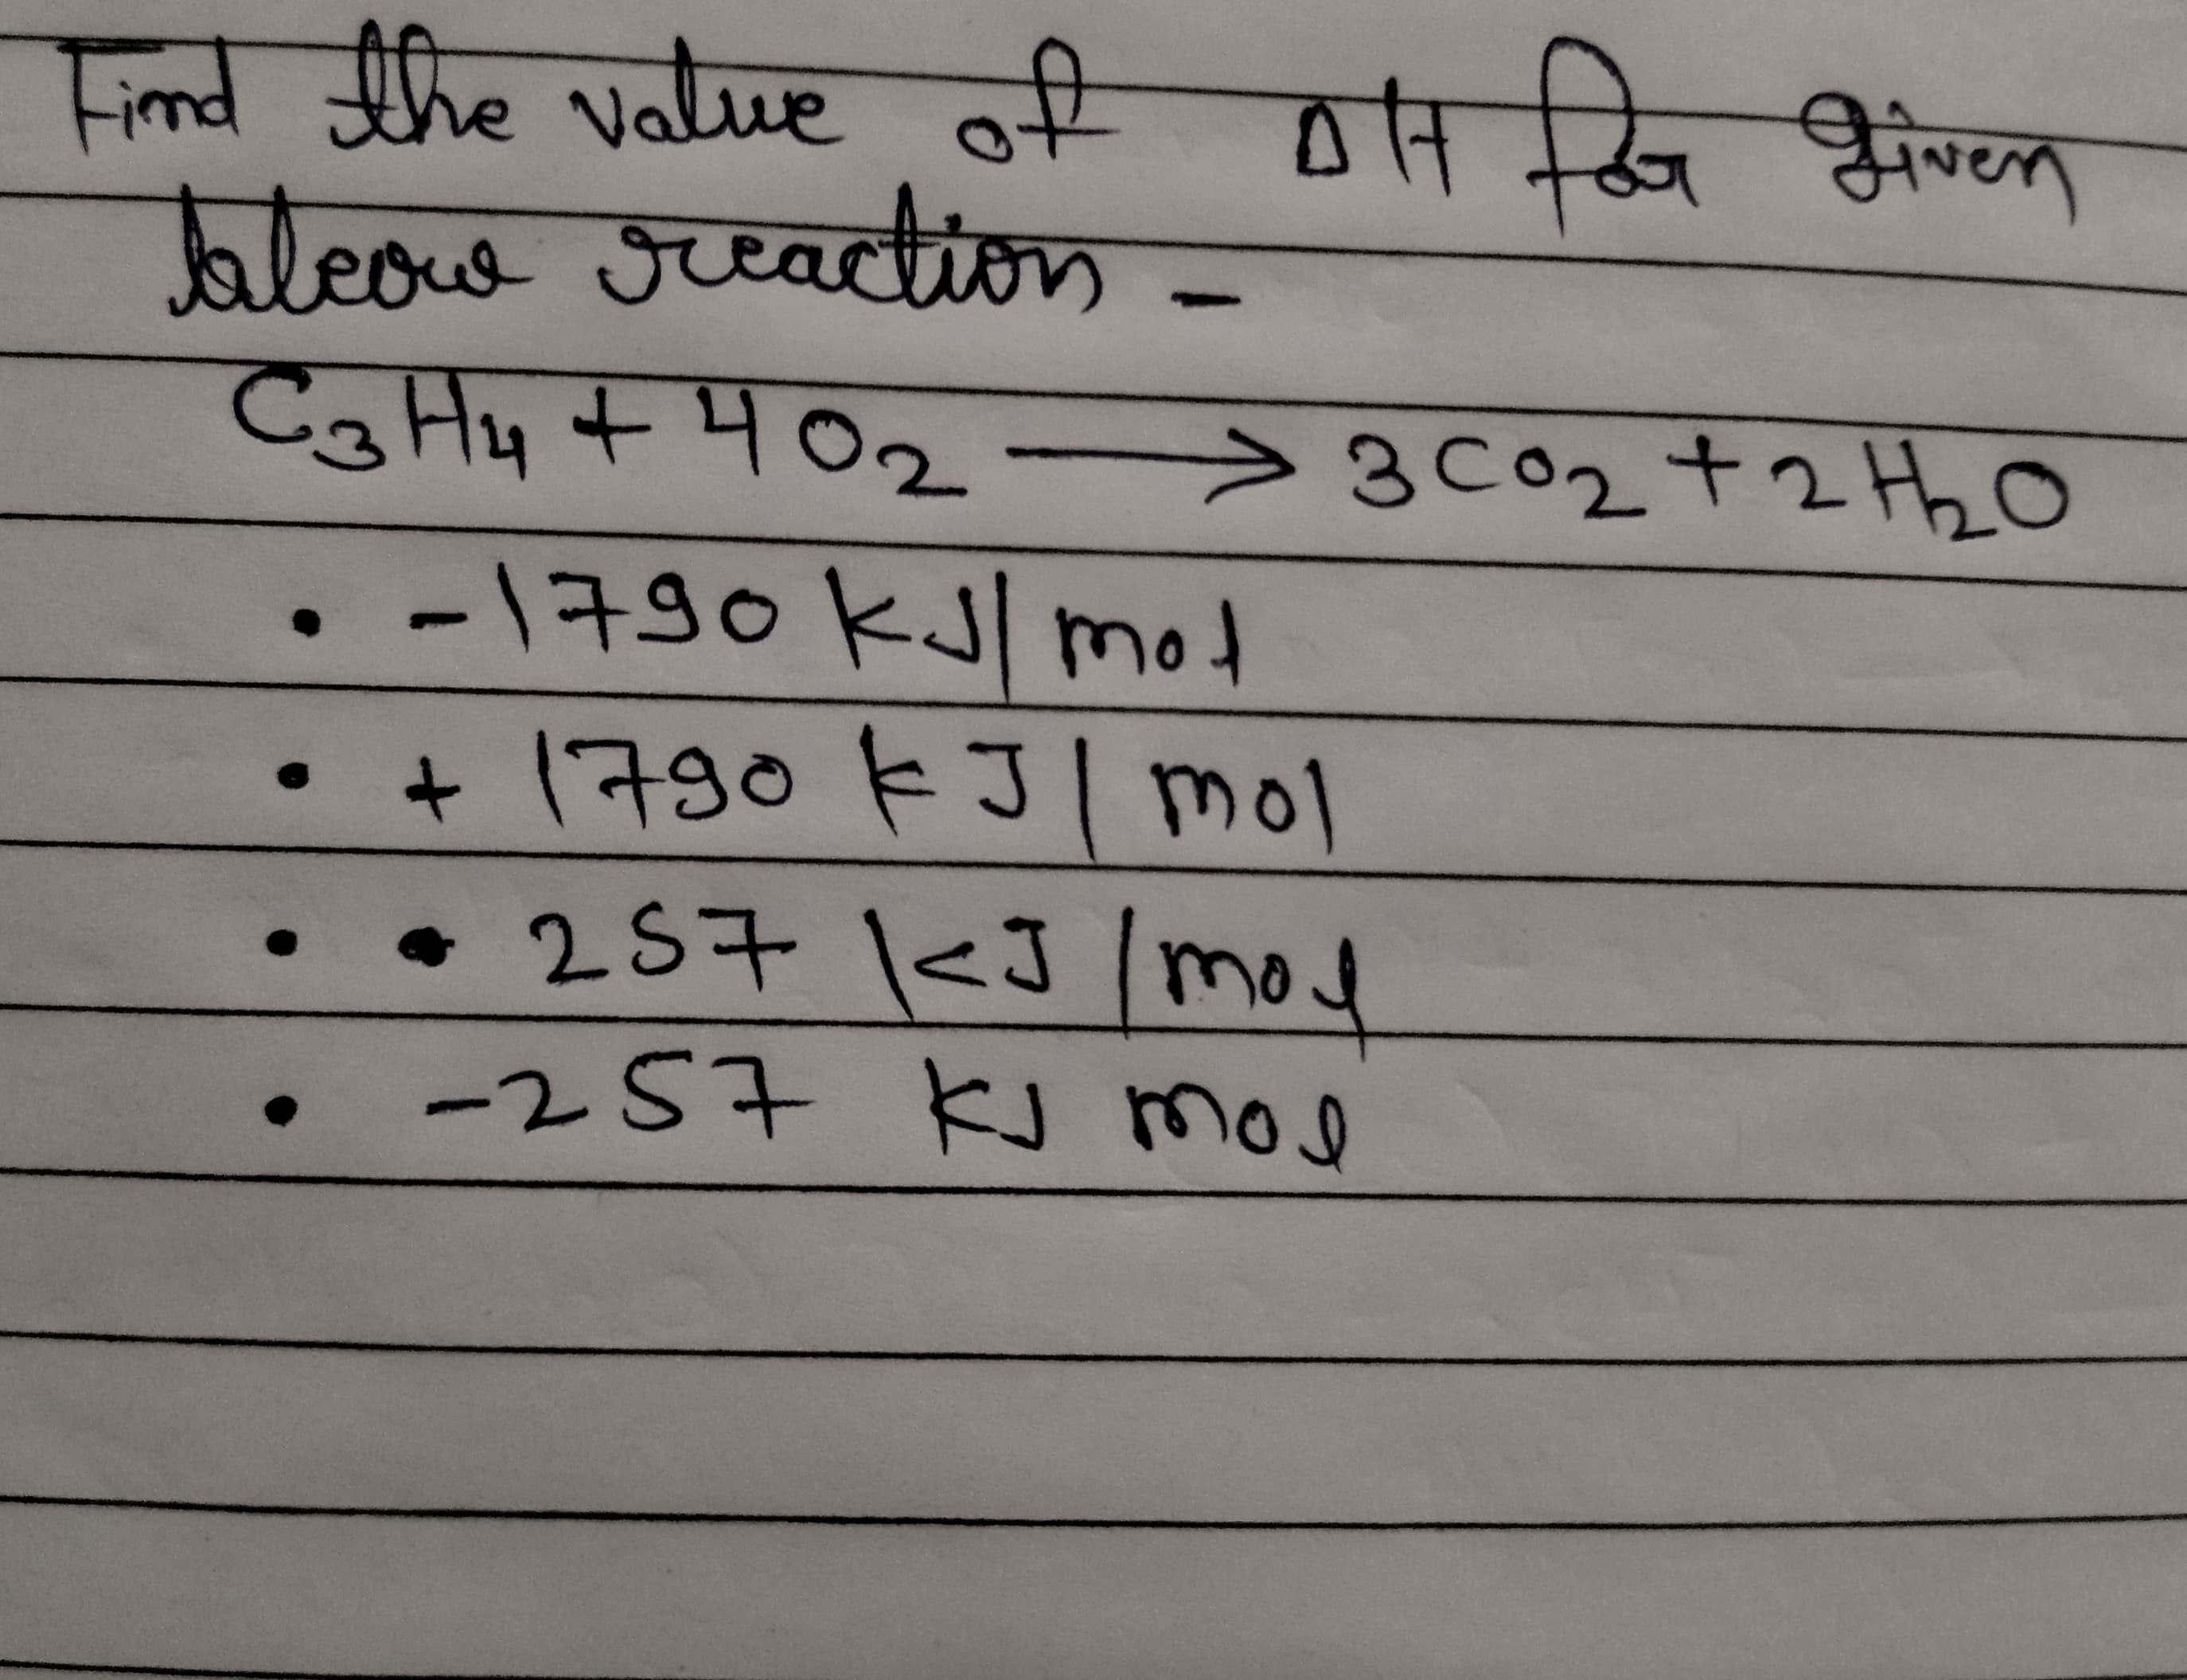 Find the value of ΔH for given
bleow reaction -
C₃H₄ + 4O₂ ⟶ 3CO₂ + 2H₂O
• -1790 kJ/mol
• + 1790 kJ/mol
• • 257 kJ/mol
• -257 kJ mol